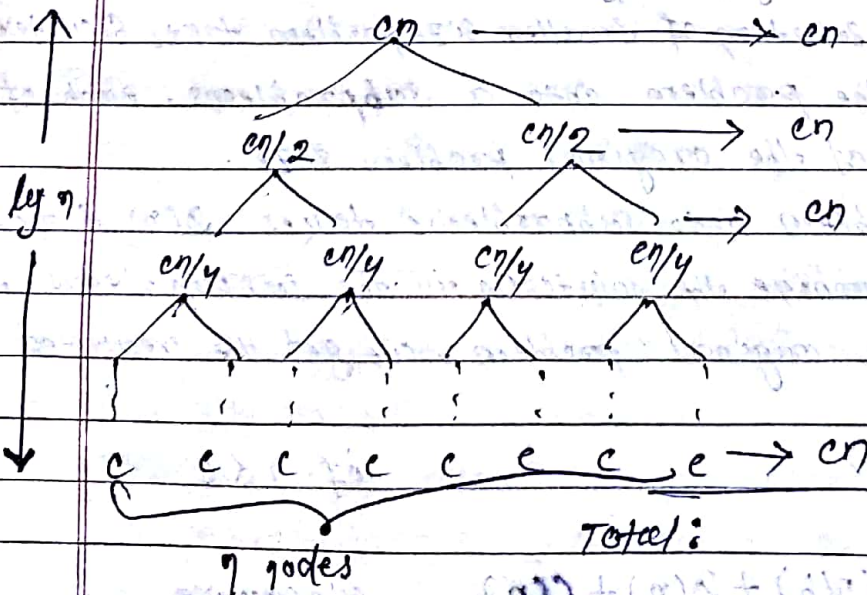 cn cn
cn/2 cn/2 cn
cn
lg n
cn/4 cn/4 cn/4 cn/4
c c c c c c c c cn
n nodes
Total: